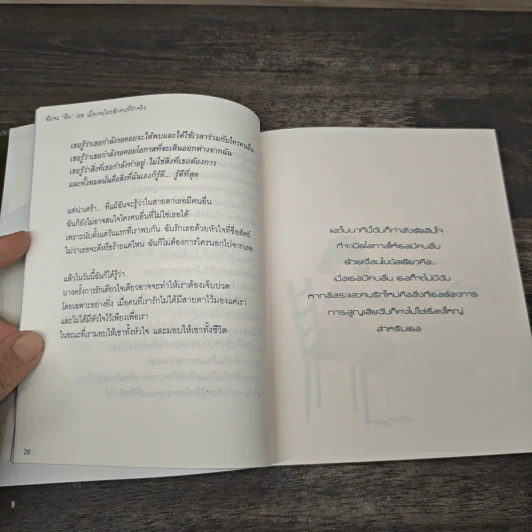 ฉันจะ "ลืม" เธอ เมื่อเจอใครสักคนที่รักจริง
เธอรู้ว่าเธอกำลังรอคอยจะได้พบและได้ใช้เวลาร่วมกับใครคนอื่น
เธอรู้ว่าเธอกำลังรอคอยโอกาสที่จะเดินออกห่างจากฉัน
เธอรู้ว่าสิ่งที่เธอกำลังทำอยู่ ไม่ใช่สิ่งที่เธอต้องการ
และทั้งหมดนั่นคือสิ่งที่ฉันเองก็รู้ดี... รู้ดีที่สุด
แต่น่าเศร้า... ที่แม้ฉันจะรู้ว่าในสายตาเธอมีคนอื่น
ฉันก็ยังไม่อาจสนใจใครคนอื่นที่ไม่ใช่เธอได้
เพราะนับตั้งแต่วันแรกที่เราพบกัน ฉันรักเธอด้วยหัวใจที่ซื่อสัตย์
ไม่ว่าเธอจะดีหรือร้ายแค่ไหน ฉันก็ไม่ต้องการใครนอกไปจากเธอ
แล้วในวันนี้ฉันก็ได้รู้ว่า..
บางครั้งการรักเดียวใจเดียวอาจจะทำให้เราต้องเจ็บปวด
โดยเฉพาะอย่างยิ่ง เมื่อคนที่เรารักไม่ได้มีสายตาไว้มองแค่เรา
และไม่ได้มีหัวใจไว้เพียงเพื่อเรา
ในขณะที่เรามอบให้เขาทั้งหัวใจ และมอบให้เขาทั้งชีวิต
26
และในนาทีนี้ฉันก็กำลังตัดสินใจ
ที่จะเปิดโอกาสให้เธอมีคนอื่น
ด้วยเงื่อนไขข้อเดียวคือ...
เมื่อเธอมีคนอื่น เธอก็จะไม่มีฉัน
หากอิสระและคนรักใหม่คือสิ่งที่เธอต้องการ
การสูญเสียฉันก็คงไม่ใช่เรื่องใหญ่
สำหรับเธอ